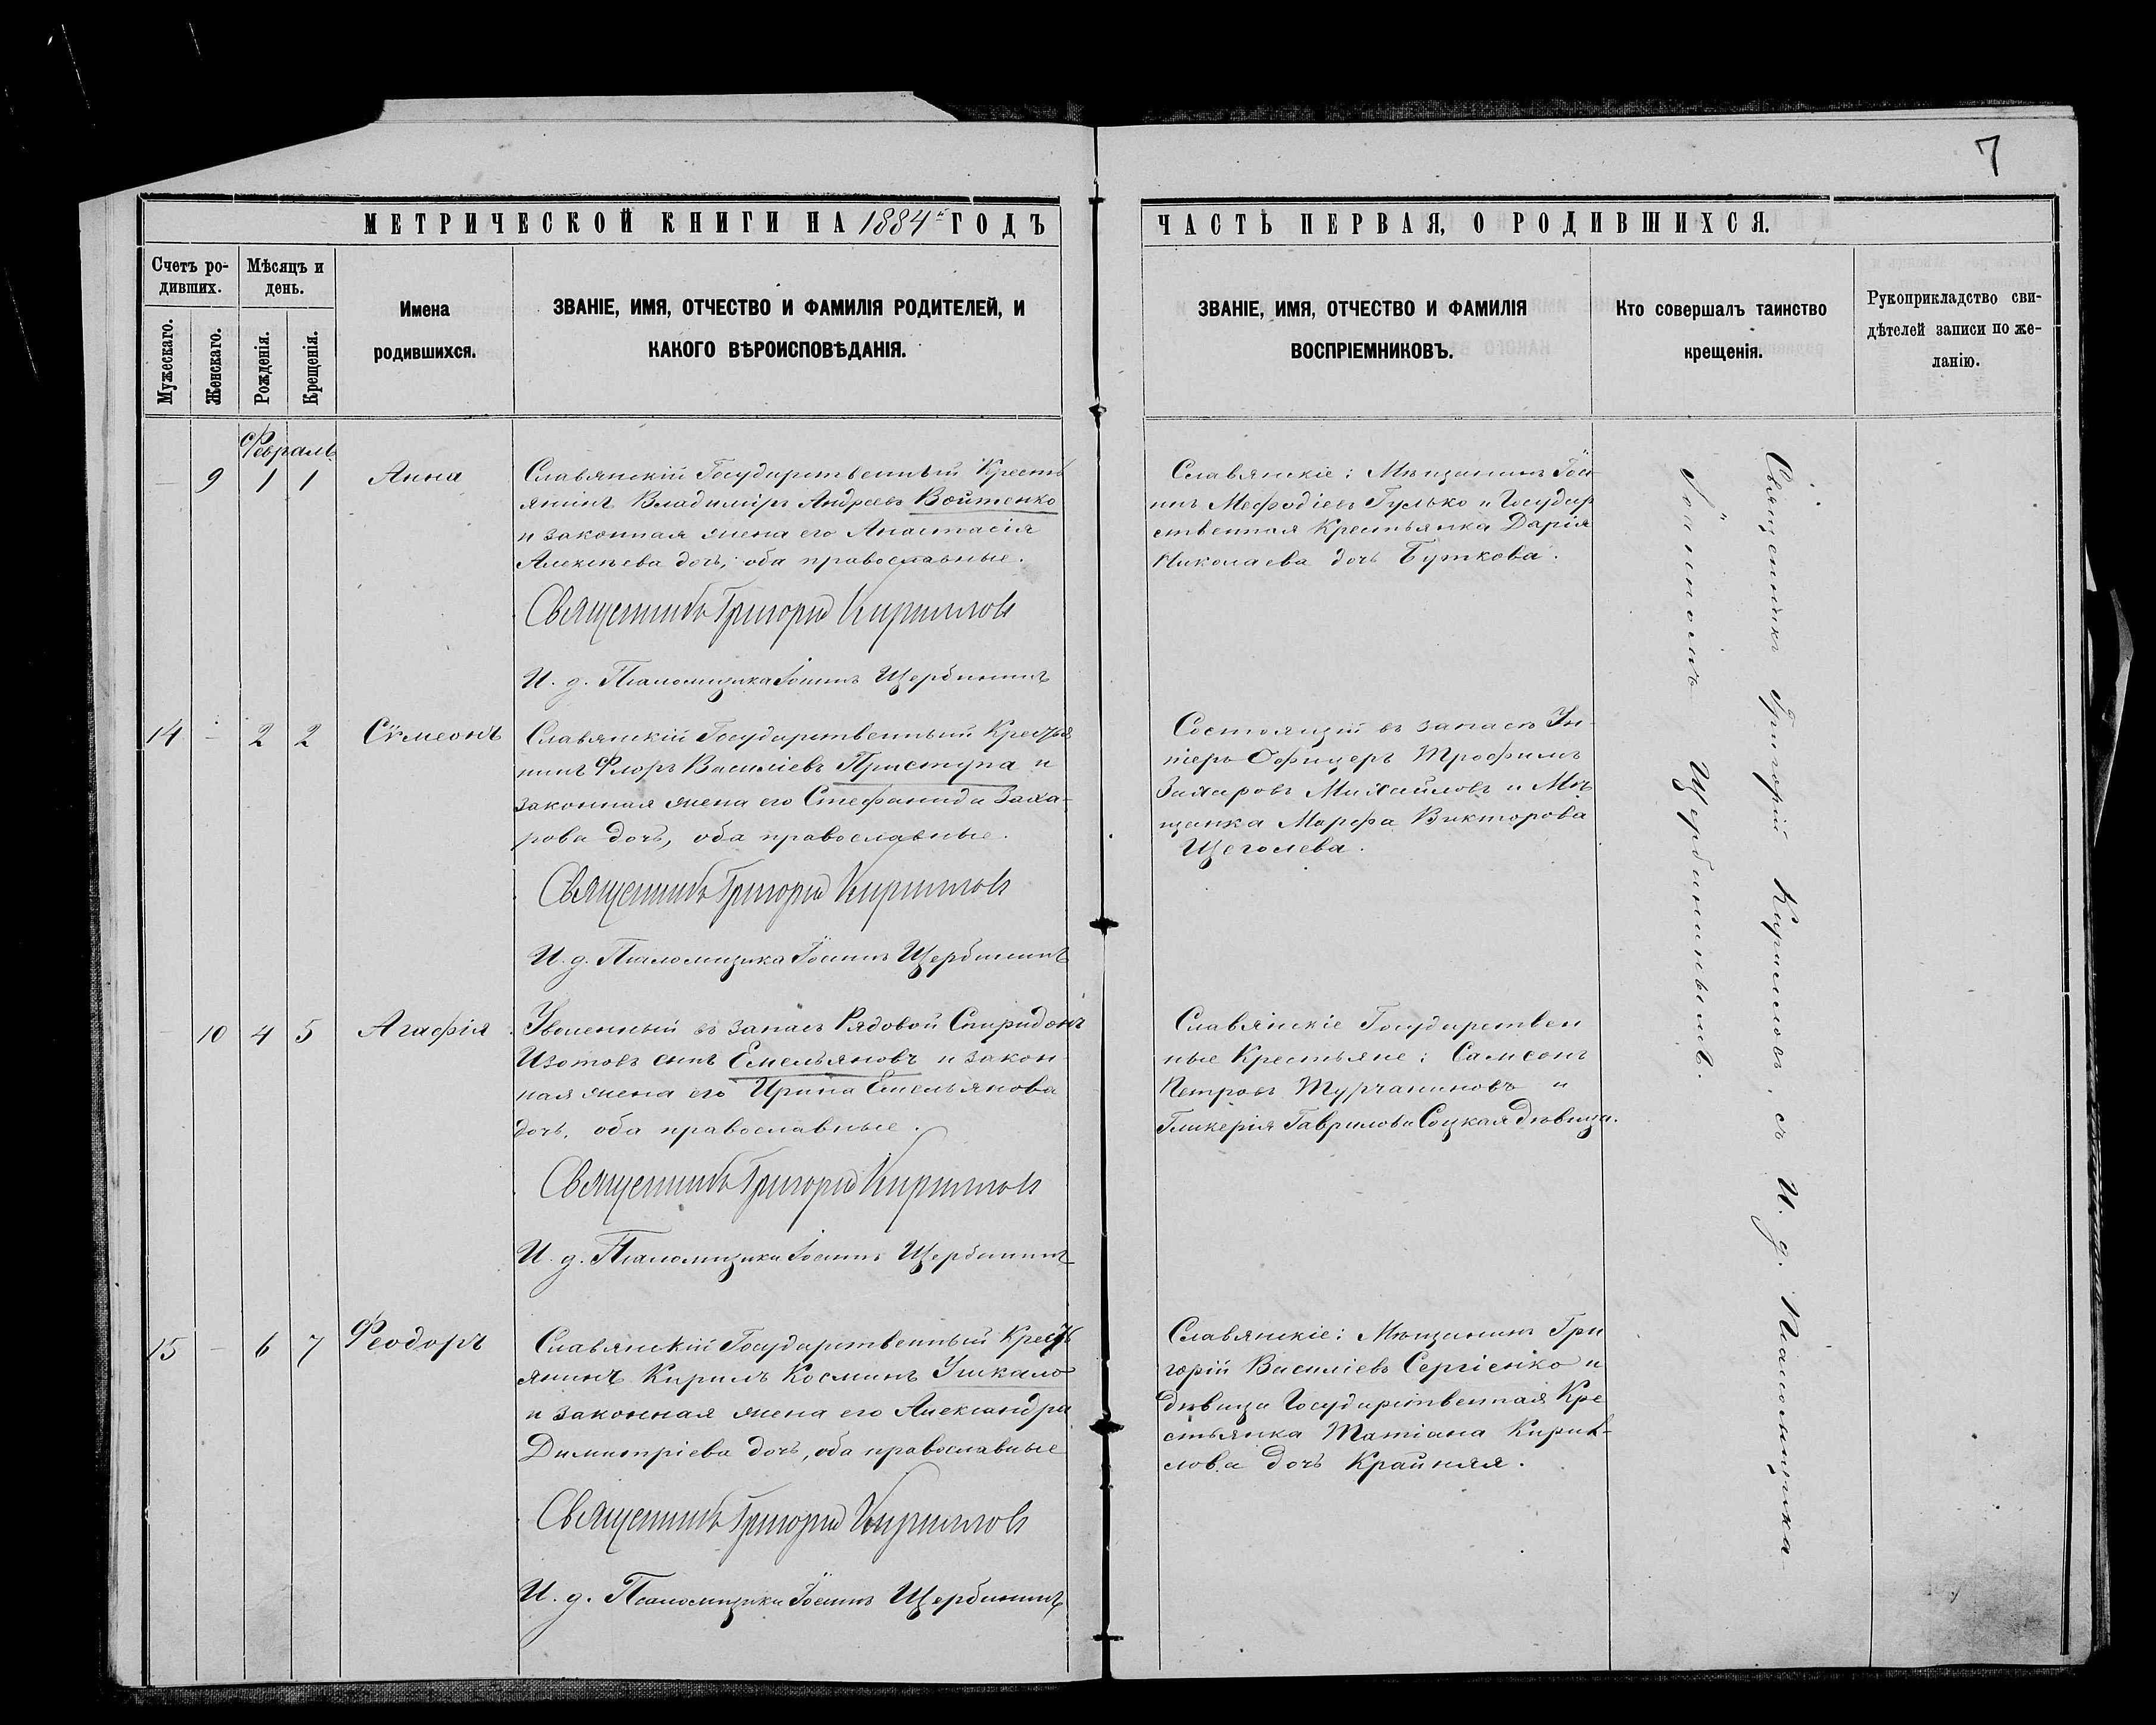 7
МЕТРИЧЕСКОЙ КНИГИ НА 1884й ГОДЪ
Счетъ ро-
дившихъ.
Мужескаго.
Женскаго.
Мѣсяцъ и
день.
Рожденія.
Крещенія.
Имена
родившихся.
ЗВАНІЕ, ИМЯ, ОТЧЕСТВО И ФАМИЛІЯ РОДИТЕЛЕЙ, И
КАКОГО ВѢРОИСПОВѢДАНІЯ.
ЧАСТЬ ПЕРВАЯ, О РОДИВШИХСЯ.
ЗВАНІЕ, ИМЯ, ОТЧЕСТВО И ФАМИЛІЯ
ВОСПРІЕМНИКОВЪ.
Кто совершалъ таинство
крещенія.
Рукоприкладство сви-
дѣтелей записи по же-
ланію.
Февраль
— 9 1 1 Анна
Славянскій Государственный Кресть
янинъ Владиміръ Андреевъ Войтенко
и законная жена его Анастасія
Алексѣева дочь; оба православные.
Священникъ Григорій Кирилловъ
И. д. Псаломщика Іоаннъ Щербининъ
Славянскіе: Мѣщанинъ Іоа-
ннъ Мефодіевъ Гулько и Государ
ственная Крестьянка Дарія
Николаева дочь Буткова.
14 — 2 2 Сѵмеонъ
Славянскій Государственный Крестья
нинъ Флоръ Василіевъ Приступа и
законная жена его Стефанида Заха-
рова дочь, оба православные.
Священникъ Григорій Кирилловъ
И. д. Псаломщика Іоаннъ Щербининъ
Состоящій въ запасѣ Ун-
теръ-Офицеръ Трофимъ
Захаровъ Михайловъ и Мѣ
щанка Марфа Викторова
Щеголева.
— 10 4 5 Агафія
Уволенный въ запасъ Рядовой Спиридонъ
Изотовъ сынъ Емельяновъ и закон-
ная жена его Ирина Емельянова
дочь, оба православные.
Священникъ Григорій Кирилловъ
И. д. Псаломщика Іоаннъ Щербининъ
Славянскіе Государствен
ные Крестьяне: Самсонъ
Петровъ Турчаниновъ и
Гликерія Гаврилова Соцкая дѣвица.
15 — 6 7 Феодоръ
Славянскій Государственный Кресть
янинъ Кирилъ Косминъ Ушкало
и законная жена его Александра
Димитріева дочь, оба православные
Священникъ Григорій Кирилловъ
И. д. Псаломщика Іоаннъ Щербининъ
Славянскіе: Мѣщанинъ Гри
горій Василіевъ Сергіенко и
дѣвица Государственная Кре
стьянка Татіана Кирил-
лова дочь Крайняя.
Священникъ Григорій Кирилловъ, съ И. д. Псаломщика
Іоанномъ Щербининымъ.